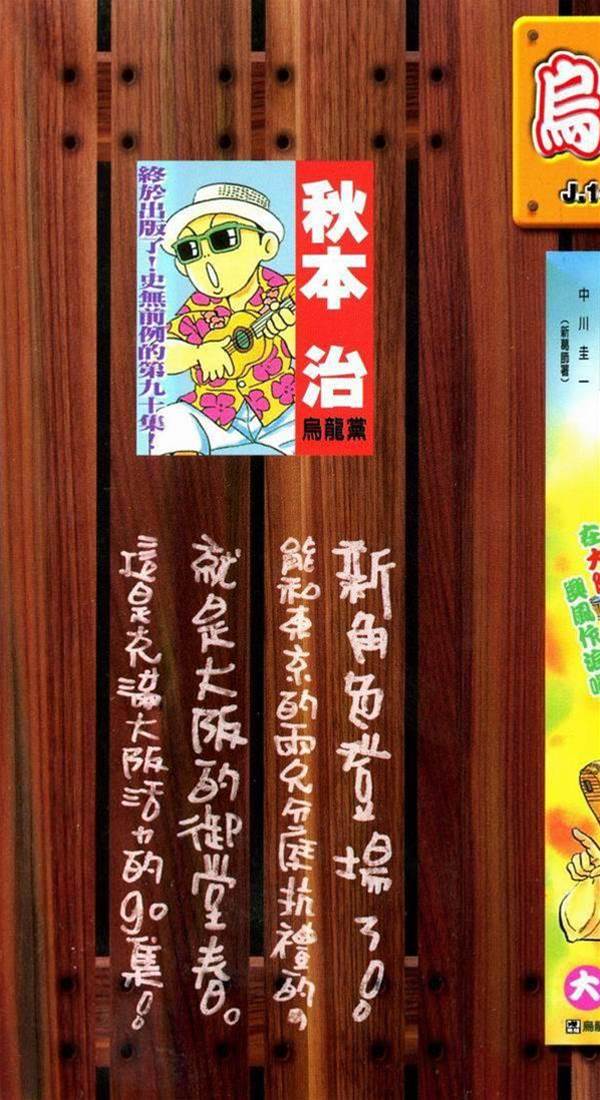 秋本 治
烏龍黨
終於出版了！史無前例的第九十集！
新角色登場了！
能和東京的兩久分庭抗禮的，
就是大阪的御堂春。
這是充滿大阪活力的90集！
烏
J.1
中川圭一
（新葛飾署）
在大
興風作浪
大
烏龍